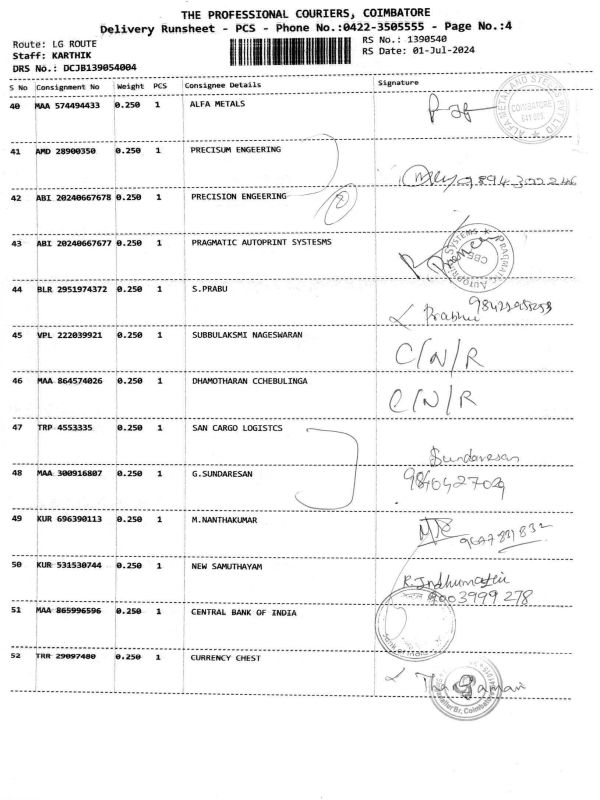 THE PROFESSIONAL COURIERS, COIMBATORE
Delivery Runsheet - PCS - Phone No.:0422-3505555 - Page No.:4
Route: LG ROUTE RS No.: 1390540
Staff: KARTHIK RS Date: 01-Jul-2024
DRS No.: DCJB139054004
S No Consignment No Weight PCS Consignee Details Signature
40 MAA 574494433 0.250 1 ALFA METALS
COIMBATORE
41 AMD 28900350 0.250 1 PRECISUM ENGEERING
42 ABI 20240667678 0.250 1 PRECISION ENGEERING
2
43 ABI 20240667677 0.250 1 PRAGMATIC AUTOPRINT SYSTESMS
PRAGMATIC AUTOPRINT SYSTEMS
CBE
44 BLR 2951974372 0.250 1 S.PRABU
Prabhu
45 VPL 222039921 0.250 1 SUBBULAKSMI NAGESWARAN
C/N/R
46 MAA 864574026 0.250 1 DHAMOTHARAN CCHEBULINGA
C/N/R
47 TRP 4553335 0.250 1 SAN CARGO LOGISTCS
Sundaresan
48 MAA 300916807 0.250 1 G.SUNDARESAN
9840427029
49 KUR 696390113 0.250 1 M.NANTHAKUMAR
50 KUR 531530744 0.250 1 NEW SAMUTHAYAM
R.Indhumathi
9003999278
51 MAA 865996596 0.250 1 CENTRAL BANK OF INDIA
52 TRR 29097480 0.250 1 CURRENCY CHEST